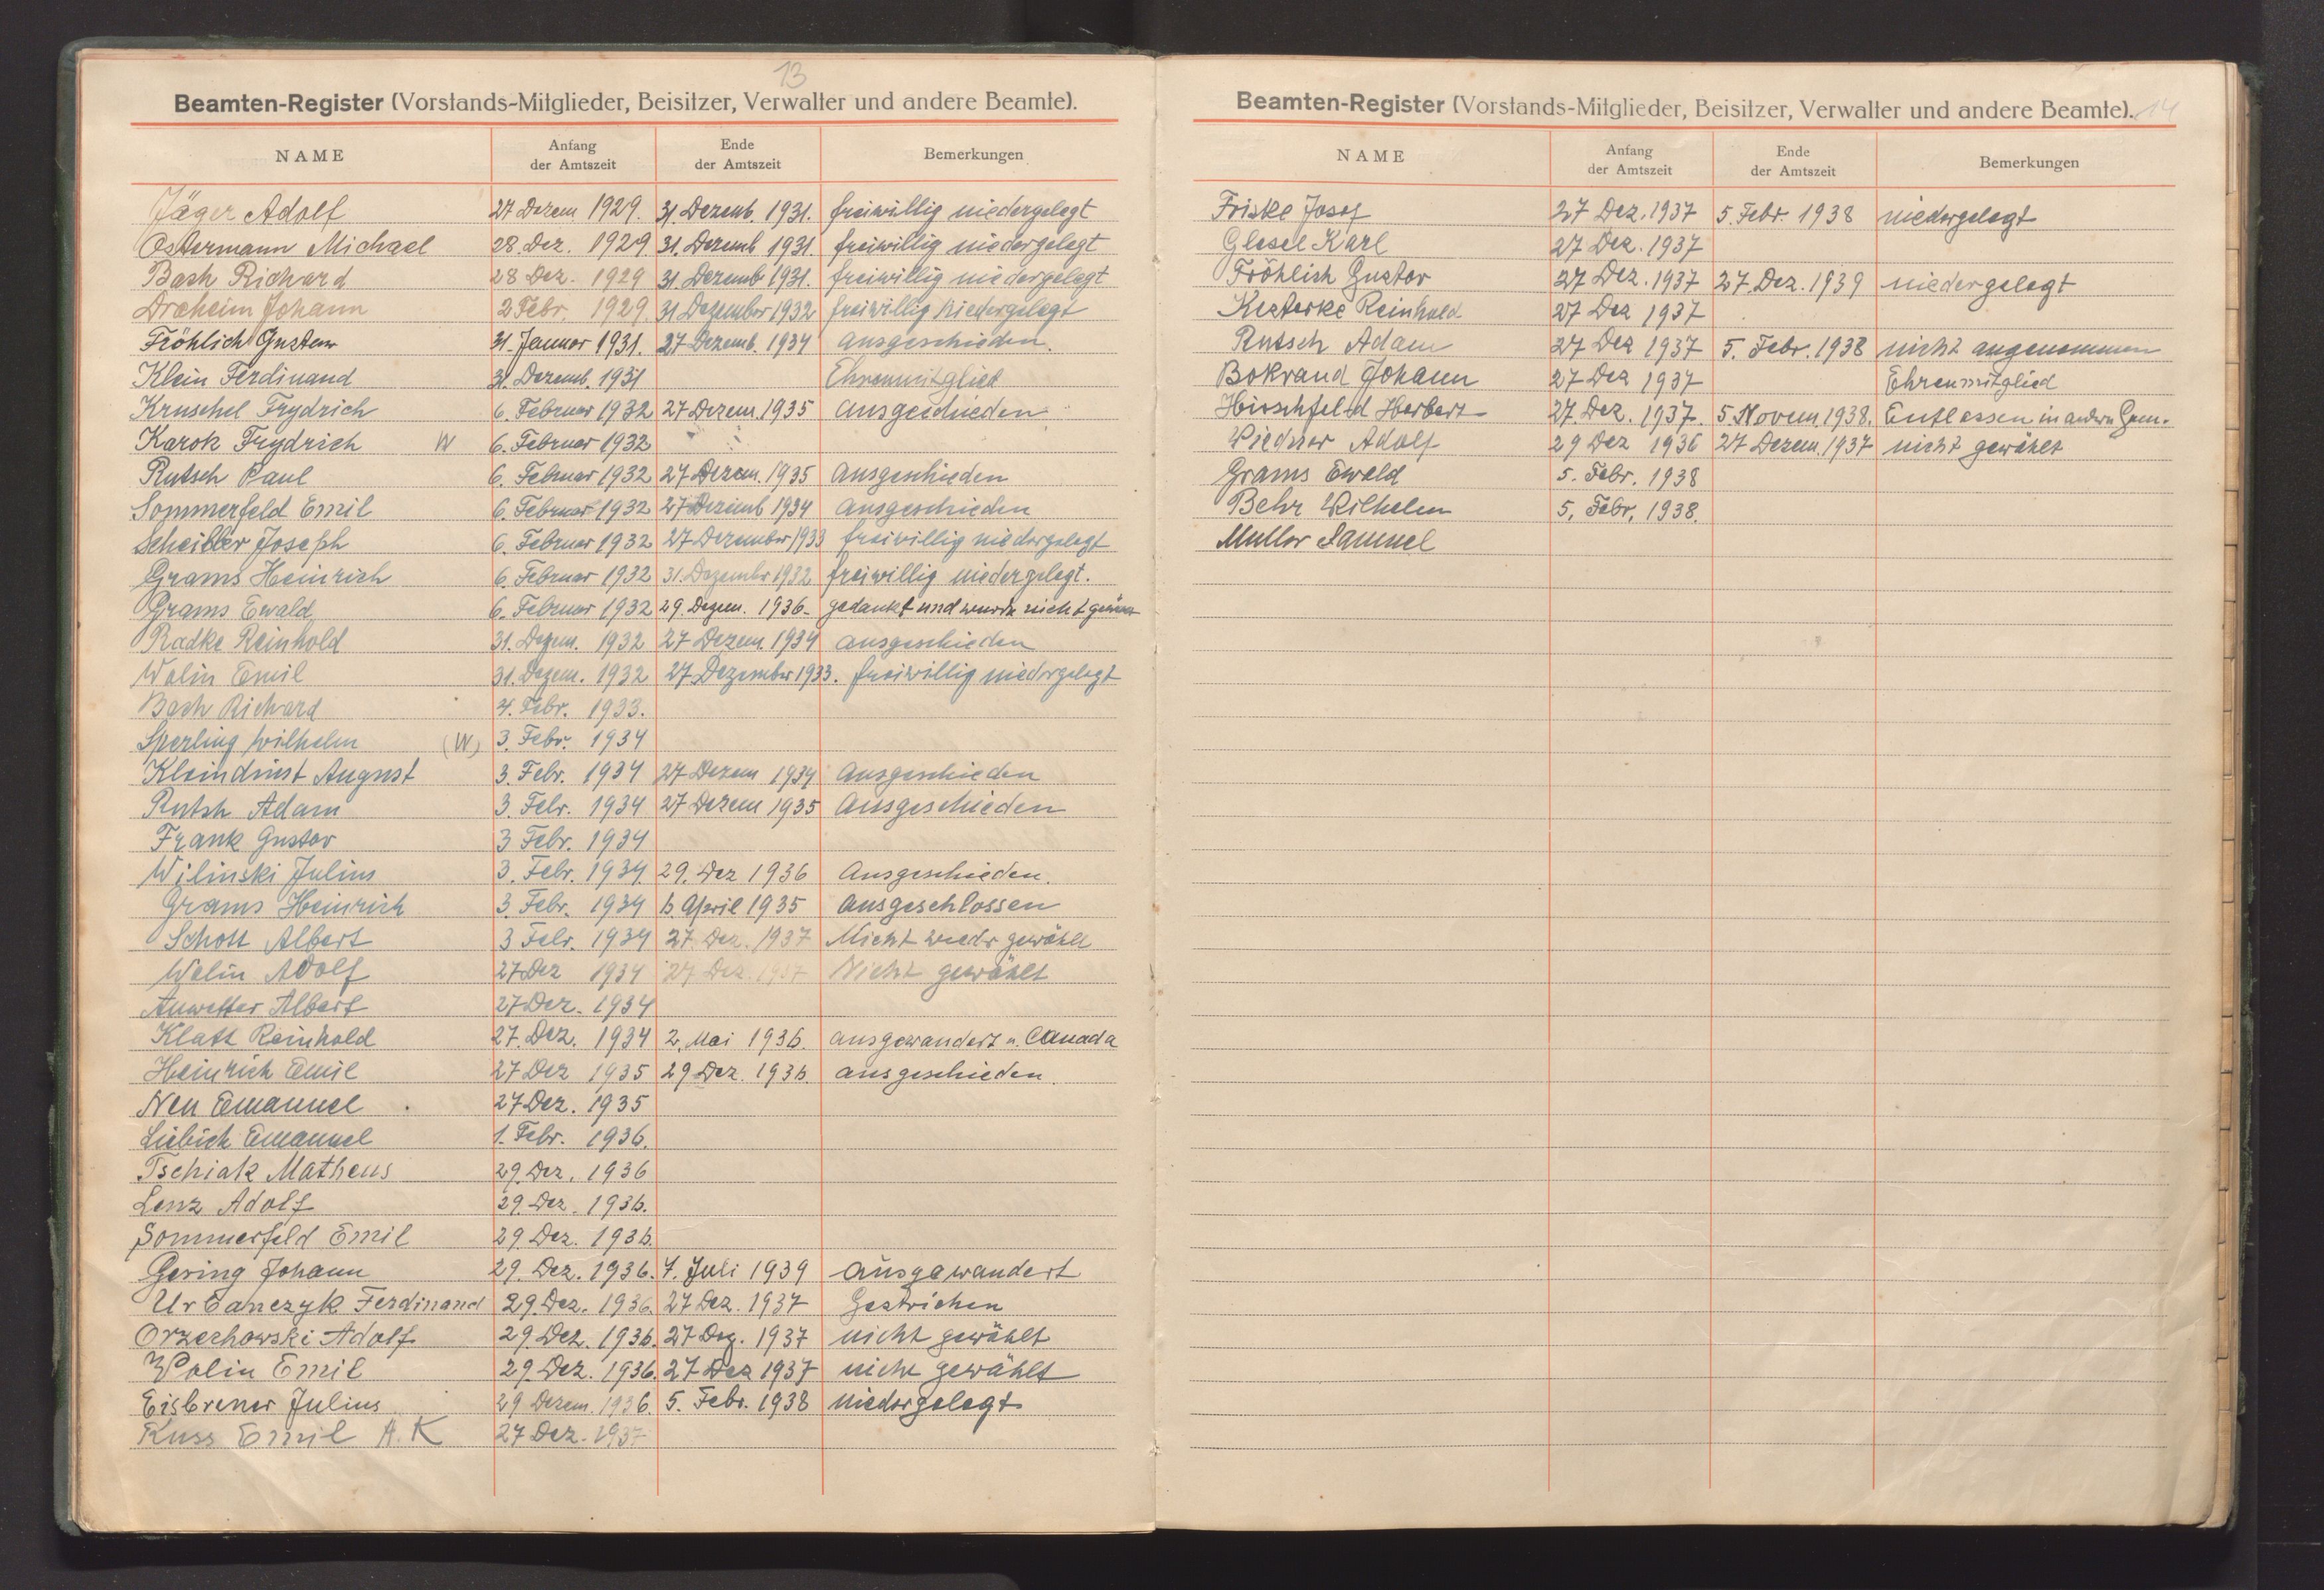 13
Beamten-Register (Vorstands-Mitglieder, Beisitzer, Verwalter und andere Beamte).
NAME Anfang der Amtszeit Ende der Amtszeit Bemerkungen
Jäger Adolf 27 Dezem 1929. 31 Dezemb. 1931. freiwillig niedergelegt
Ostermann Michael 28. Dez. 1929. 31. Dezemb 1931. freiwillig niedergelegt
Bach Richard 28 Dez. 1929 31. Dezemb 1931. freiwillig niedergelegt
Draheim Johann 2 Febr. 1929. 31 Dezember 1932 freiwillig niedergelegt
Fröhlich Gustaw 31. Januar 1931. 27 Dezemb. 1934 ausgeschieden.
Klein Ferdinand 31. Dezemb. 1931 Ehrenmitglied
Kruschel Frydrich 6. Februar 1932 27 Dezem. 1935 ausgeschieden
Karok Frydrich W 6. Februar 1932
Rutsch Paul 6. Februar 1932 27 Dezem. 1935 ausgeschieden
Sommerfeld Emil 6. Februar 1932 27 Dezemb 1934 ausgeschieden
Scheibler Joseph 6. Februar 1932 27 Dezember 1933 freiwillig niedergelegt
Grams Heinrich 6. Februar 1932 31. Dezember 1932 freiwillig niedergelegt.
Grams Ewald 6. Februar 1932 29. Dezem. 1936. gedankt und wurde nicht
Radke Reinhold 31. Dezem. 1932 27 Dezem. 1934 ausgeschieden
Wolin Emil 31. Dezem. 1932 27 Dezember 1933. freiwillig niedergelegt
Bach Richard 4. Febr. 1933.
Sperling Wilhelm (W) 3. Febr. 1934
Kleindinst August 3. Febr. 1934 27 Dezem 1934 ausgeschieden
Rutsh Adam 3. Febr. 1934 27 Dezem 1935 ausgeschieden
Frank Gustav 3 Febr. 1934
Wilinski Julius 3. Febr. 1934. 29. Dez 1936 Ausgeschieden.
Grams Heinrich 3. Febr. 1934 6. April 1935 ausgeschlossen
Schott Albert 3 Febr. 1934 27. Dez. 1937 Nicht wiedr gewählt
Wolin Adolf 27 Dez 1934 27 Dez. 1937 Nicht gewählt
Anwetter Albert 27 Dez. 1934
Klatt Reinhold 27. Dez. 1934 2. Mai 1936. ausgewandert n. Canada
Heinrich Emil 27 Dez 1935 29 Dez. 1936. ausgeschieden.
Neu Emanuel 27 Dez. 1935
Liebich Emanuel 1. Febr. 1936.
Tschiak Matheus 29. Dez. 1936
Lenz Adolf 29. Dez. 1936.
Sommerfeld Emil 29. Dez. 1936.
Gering Johann 29. Dez. 1936. 7. Juli 1939 ausgewandert
Urbanczyk Ferdinand 29. Dez. 1936. 27 Dez. 1937 Gestrichen
Orzechowski Adolf 29. Dez. 1936. 27 Dez. 1937 nicht gewählt
Wolin Emil 29. Dez. 1936. 27 Dez 1937 nicht gewählt
Eisbrener Julius 29 Dezem. 1936. 5. Febr. 1938 niedergelegt
Kuss Emil A. K 27 Dez. 1937
14
Beamten-Register (Vorstands-Mitglieder, Beisitzer, Verwalter und andere Beamte).
NAME Anfang der Amtszeit Ende der Amtszeit Bemerkungen
Friske Josef 27 Dez. 1937 5. Febr. 1938 niedergelegt
Glesel Karl 27 Dez. 1937
Fröhlich Gustav 27 Dez. 1937 27. Dez. 1939 niedergelegt
Kesterke Reinhold 27 Dez 1937
Rutsch Adam 27 Dez 1937 5. Febr. 1938 nicht angenommen
Bokrand Johann 27 Dez 1937 Ehrenmitglied
Hirschfeld Herbert 27. Dez. 1937. 5. Novem. 1938. Entlassen in andere Gem.
Wiedner Adolf 29 Dez 1936 27 Dezem. 1937 nicht gewählt
Grams Ewald 5. Febr. 1938
Behr Wilhelm 5. Febr. 1938.
Muller Samuel